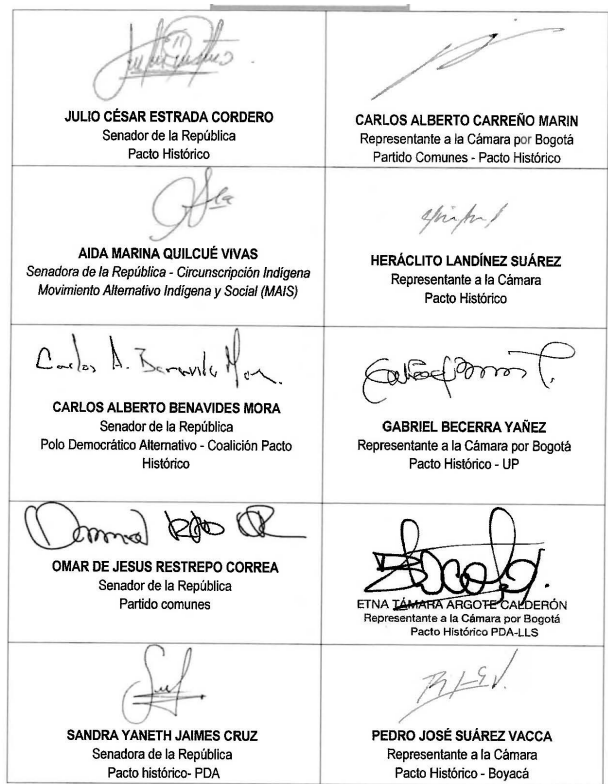 JULIO CÉSAR ESTRADA CORDERO
Senador de la República
Pacto Histórico
CARLOS ALBERTO CARREÑO MARIN
Representante a la Cámara por Bogotá
Partido Comunes - Pacto Histórico
AIDA MARINA QUILCUÉ VIVAS
Senadora de la República - Circunscripción Indígena
Movimiento Alternativo Indígena y Social (MAIS)
HERÁCLITO LANDÍNEZ SUÁREZ
Representante a la Cámara
Pacto Histórico
Carlos A. Benavides Mora
CARLOS ALBERTO BENAVIDES MORA
Senador de la República
Polo Democrático Alternativo - Coalición Pacto
Histórico
GABRIEL BECERRA YAÑEZ
Representante a la Cámara por Bogotá
Pacto Histórico - UP
OMAR DE JESUS RESTREPO CORREA
Senador de la República
Partido comunes
ETNA TÁMARA ARGOTE CALDERÓN
Representante a la Cámara por Bogotá
Pacto Histórico PDA-LLS
SANDRA YANETH JAIMES CRUZ
Senadora de la República
Pacto histórico- PDA
PEDRO JOSÉ SUÁREZ VACCA
Representante a la Cámara
Pacto Histórico - Boyacá